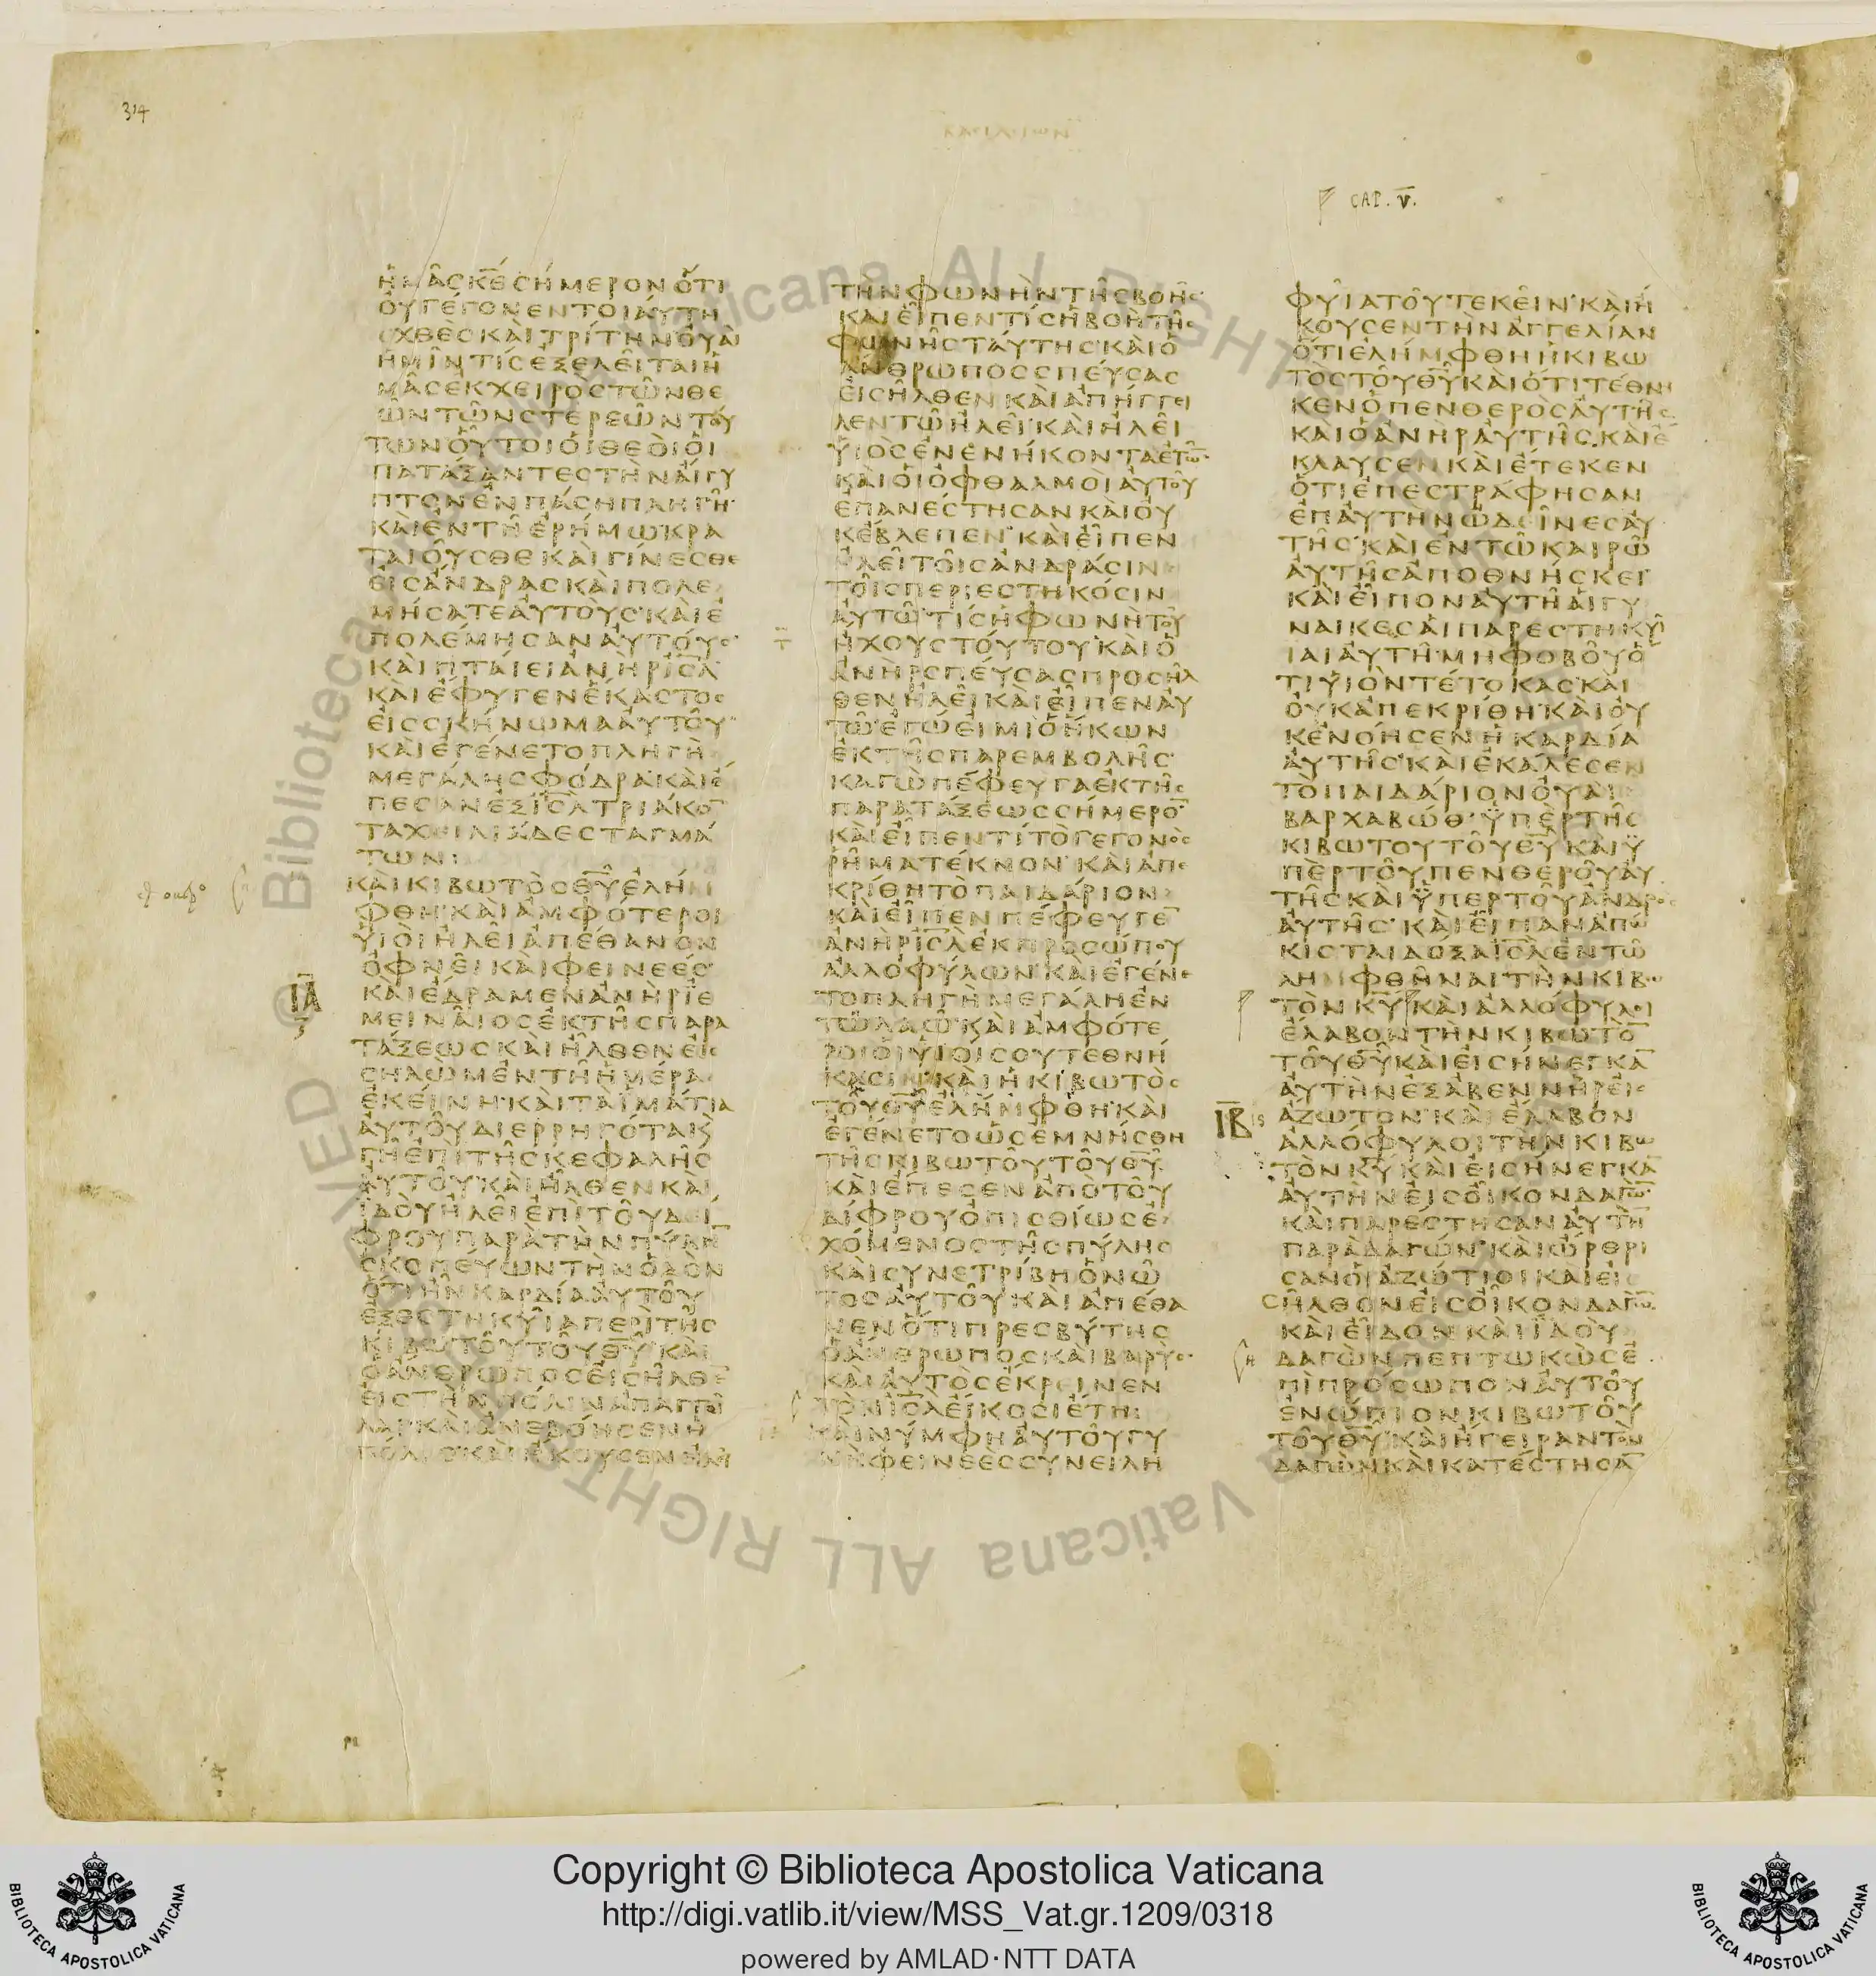 314
ΒΑΣΙΛΕΙΩΝ
CAP. V.
ἩΜᾶΣ ΚΕ ΣΉΜΕΡΟΝ ὍΤΙ
ΟΥ ΓΈΓΟΝΕΝ ΤΟΙΑΎΤΗ
ΕΧΘῈΣ ΚΑῚ ΤΡΊΤΗΝ ΟΥΑῚ
ἩΜῖΝ ΤΊΣ ΕΞΕΛΕῖΤΑΙ Ἡ
ΜᾶΣ ΕΚ ΧΕΙΡῸΣ ΤῶΝ ΘΕ
ῶΝ ΤῶΝ ΣΤΕΡΕῶΝ ΤΟΎ
ΤΩΝ ΟὟΤΟΙ ΟἹ ΘΕΟῚ ΟἹ
ΠΑΤΆΞΑΝΤΕΣ ΤῊΝ ΑΊΓΥ
ΠΤΟΝ ΕΝ ΠΆΣΗ ΠΛΗΓῆ
ΚΑῚ ΕΝ ΤῆΕΡΉΜΩ ΚΡΑ
ΤΑΙΟῦΣΘΕ ΚΑῚ ΓΊΝΕΣΘΕ
ΕΙΣ ΆΝΔΡΑΣ ΚΑῚ ΠΟΛΕ
ΜΉΣΑΤΕ ΑΥΤΟΥΣ ΚΑῚ Ε
ΠΟΛΈΜΗΣΑΝ ΑΥΤΟΎΣ
ΚΑῚ ΠΤΑΊΕΙ ΑΝῊΡ ΙΣΛ
ΚΑῚ ΈΦΥΓΕΝ ἝΚΑΣΤΟΣ
ΕΙΣ ΣΚΉΝΩΜΑ ΑΥΤΟῦ
ΚΑῚ ΕΓΈΝΕΤΟ ΠΛΗΓῊ
ΜΕΓΆΛΗ ΣΦΌΔΡΑ ΚΑῚ Έ
ΠΕΣΑΝ ΕΞ ΙΣΛ ΤΡΙΆΚΟ
ΤΑ ΧΕΙΛΙΆΔΕΣ ΤΑΓΜΆ
ΤΩΝ
ΚΑῚ ΚΙΒΩΤῸΣ ΘΥ ΕΛΉΜ
ΦΘΗ ΚΑῚ ΑΜΦΌΤΕΡΟΙ
ΥἹΟῚ ΗΛΕῚ ΑΠΈΘΑΝΟΝ
ΟΦΝΕῚ ΚΑῚ ΦΕΙΝΕΈΣ
ΙΑ
ΚΑῚ ΈΔΡΑΜΕΝ ΑΝῊΡ ΙΕ
ΜΕΙΝΑῖΟΣ ΕΚ ΤῆΣ ΠΑΡΑ
ΤΆΞΕΩΣ ΚΑῚ ῆΛΘΕΝ ΕΙΣ
ΣΗΛΩΜ ΕΝ ΤῆἩΜΈΡΑ
ΕΚΕΊΝΗ ΚΑῚ ΤΑ ἹΜΆΤΙΑ
ΑΥΤΟῦ ΔΙΕΡΡΗΓΌΤΑ Κ
ΓῆΕΠῚ ΤῆΣ ΚΕΦΑΛῆΣ
ΑΥΤΟῦ ΚΑῚ ῆΛΘΕΝ ΚΑῚ
ἸΔΟῪ ΗΛΕῚ ΕΠῚ ΤΟῦ ΔΊ
ΦΡΟΥ ΠΑΡᾺ ΤῊΝ ΠΎΛΗ
ΣΚΟΠΕΎΩΝ ΤῊΝ ὉΔῸΝ
ὍΤΙ ῆΝ ΚΑΡΔΊΑ ΑΥΤΟῦ
ΕΞΕΣΤΗΚΥῖΑ ΠΕΡῚ ΤῆΣ
ΚΙΒΩΤΟῦ ΤΟῦ ΘΥ ΚΑῚ
Ὁ ΆΝΘΡΩΠΟΣ ΕΙΣῆΛΘΕ
ΕΙΣ ΤῊΝ ΠΌΛΙΝ ΑΠΑΓΓΕῖ
ΛΑΙ ΚΑῚ ΑΝΕΒΌΗΣΕΝ Ἡ
ΠΌΛΙΣ ΚΑῚ ΉΚΟΥΣΕΝ ΗΛΕῚ
ΤῊΝ ΦΩΝῊΝ ΤῆΣ ΒΟῆΣ
ΚΑΙ ΕῖΠΕΝ ΤΊΣ Ἡ ΒΟῊ ΤῆΣ
ΦΩΝῆΣ ΤΑΎΤΗΣ ΚΑῚ Ὁ
ΆΝΘΡΩΠΟΣ ΣΠΕΎΣΑΣ
ΕΙΣῆΛΘΕΝ ΚΑῚ ΑΠΉΓΓΕΙ
ΛΕΝ ΤῶΗΛΕῚ ΚΑῚ ΗΛΕῚ
ΥἹῸΣ ΕΝΕΝΉΚΟΝΤΑ ΕΤῶ
ΚΑῚ ΟἹ ΟΦΘΑΛΜΟῚ ΑΥΤΟῦ
ΕΠΑΝΈΣΤΗΣΑΝ ΚΑῚ ΟΥ
Κ ΈΒΛΕΠΕΝ ΚΑῚ ΕῖΠΕΝ
ΗΛΕῚ ΤΟῖΣ ΑΝΔΡΆΣΙΝ
ΤΟῖΣ ΠΕΡΙΕΣΤΗΚΌΣΙΝ
ΑΥΤῶ ΤΊΣ Ἡ ΦΩΝῊ ΤΟῦ
ΉΧΟΥΣ ΤΟΎΤΟΥ ΚΑῚ Ὁ
ΑΝῊΡ ΣΠΕΎΣΑΣ ΠΡΟΣῆΛ
ΘΕΝ ΗΛΕῚ ΚΑῚ ΕῖΠΕΝ ΑΥ
ΤῶΕΓΏ ΕΙΜΙ Ὁ ἭΚΩΝ
ΕΚ ΤῆΣ ΠΑΡΕΜΒΟΛῆΣ
ΚΑΓῺ ΠΈΦΕΥΓΑ ΕΚ ΤῆΣ
ΠΑΡΑΤΆΞΕΩΣ ΣΉΜΕΡΟ
ΚΑῚ ΕῖΠΕΝ ΤΊ ΤῸ ΓΕΓΟΝῸΣ
ΡῆΜΑ ΤΈΚΝΟΝ ΚΑῚ ΑΠΕ
ΚΡΊΘΗ ΤῸ ΠΑΙΔΆΡΙΟΝ
ΚΑῚ ΕῖΠΕΝ ΠΈΦΕΥΓΕ
ΑΝῊΡ ΙΣΛ ΕΚ ΠΡΟΣΏΠΟΥ
ΑΛΛΟΦΎΛΩΝ ΚΑῚ ΕΓΈΝΕ
ΤΟ ΠΛΗΓῊ ΜΕΓΆΛΗ ΕΝ
ΤῶΛΑῶ ΚΑῚ ΑΜΦΌΤΕ
ΡΟΙ ΟἹ ΥἹΟΊ ΣΟΥ ΤΕΘΝΉ
ΚΑΣΙΝ ΚΑῚ Ἡ ΚΙΒΩΤῸΣ
ΤΟῦ ΘΥ ΕΛΉΜΦΘΗ ΚΑῚ
ΕΓΈΝΕΤΟ ὩΣ ΕΜΝΉΣΘΗ
ΤῆΣ ΚΙΒΩΤΟῦ ΤΟῦ ΘΥ
ΚΑῚ ΈΠΕΣΕΝ ΑΠῸ ΤΟῦ
ΔΊΦΡΟΥ ΟΠΙΣΘΊΩΣ Ε
ΧΌΜΕΝΟΣ ΤῆΣ ΠΎΛΗΣ
ΚΑῚ ΣΥΝΕΤΡΊΒΗ Ὁ Νῶ
ΤΟΣ ΑΥΤΟῦ ΚΑῚ ΑΠΈΘΑ
ΝΕΝ ὍΤΙ ΠΡΕΣΒΎΤΗΣ
Ὁ ΆΝΘΡΩΠΟΣ ΚΑῚ ΒΑΡΎΣ
ΚΑΙ ΑΥΤῸΣ ΈΚΡΕΙΝΕΝ
ΤῸΝ ΙΣΛ ΕΊΚΟΣΙ ΈΤΗ
ΚΑῚ ΝΎΜΦΗ ΑΥΤΟῦ ΓΥ
ΝῊ ΦΕΙΝΕῈΣ ΣΥΝΕΙΛΗ
ΦΥῖΑ ΤΟῦ ΤΕΚΕῖΝ ΚΑῚ Ή
ΚΟΥΣΕΝ ΤῊΝ ΑΓΓΕΛΊΑΝ
ὍΤΙ ΕΛΉΜΦΘΗ Ἡ ΚΙΒΩ
ΤῸΣ ΤΟῦ ΘΥ ΚΑῚ ὍΤΙ ΤΈΘΝΗ
ΚΕΝ Ὁ ΠΕΝΘΕΡῸΣ ΑΥΤῆΣ
ΚΑῚ Ὁ ΑΝῊΡ ΑΥΤῆΣ ΚΑῚ Έ
ΚΛΑΥΣΕΝ ΚΑῚ ΈΤΕΚΕΝ
ὍΤΙ ΕΠΕΣΤΡΆΦΗΣΑΝ
ΕΠ ΑΥΤῊΝ ΩΔῖΝΕΣ ΑΥ
ΤῆΣ ΚΑῚ ΕΝ ΤῶΚΑΙΡῶ
ΑΥΤῆΣ ΑΠΟΘΝΉΣΚΕΙ
ΚΑῚ ΕῖΠΟΝ ΑΥΤῆΑἹ ΓΥ
ΝΑΙΚΕΣ ΑἹ ΠΑΡΕΣΤΗΚΥῖ
ΙΑΙ ΑΥΤῆ ΜῊ ΦΟΒΟῦ Ὅ
ΤΙ ΥἹῸΝ ΤΈΤΟΚΑΣ ΚΑῚ
ΟΥΚ ΑΠΕΚΡΊΘΗ ΚΑῚ ΟΥ
Κ ΕΝΌΗΣΕΝ Ἡ ΚΑΡΔΊΑ
ΑΥΤῆΣ ΚΑῚ ΕΚΆΛΕΣΕΝ
ΤῸ ΠΑΙΔΆΡΙΟΝ ΟΥΑῚ
ΒΑΡΧΑΒΏΘ ὙΠῈΡ ΤῆΣ
ΚΙΒΩΤΟΥ ΤΟῦ ΘΥ ΚΑῚ Ὑ
ΠῈΡ ΤΟῦ ΠΕΝΘΕΡΟῦ ΑΥ
ΤῆΣ ΚΑῚ ὙΠῈΡ ΤΟῦ ΑΝΔΡῸΣ
ΑΥΤῆΣ ΚΑῚ ΕῖΠΑΝ ΑΠΏ
ΚΙΣΤΑΙ ΔΌΞΑ ΙΣΛ ΕΝ Τῶ
ΛΗΜΦΘῆΝΑΙ ΤῊΝ ΚΙΒΩ
ΤῸΝ ΚΥ ΚΑῚ ΑΛΛΌΦΥΛΟΙ
ΈΛΑΒΟΝ ΤῊΝ ΚΙΒΩΤῸ
ΤΟῦ ΘΥ ΚΑῚ ΕΙΣΉΝΕΓΚΑ
ΑΥΤῊΝ ΕΞ ΑΒΕΝΝῊΡ ΕΙΣ
ΙΒ
ΆΖΩΤΟΝ ΚΑῚ ΈΛΑΒΟΝ
ΑΛΛΌΦΥΛΟΙ ΤῊΝ ΚΙΒΩ
ΤῸΝ ΚΥ ΚΑῚ ΕΙΣΉΝΕΓΚΑ
ΑΥΤῊΝ ΕΙΣ ΟῖΚΟΝ ΔΑΓΩ
ΚΑῚ ΠΑΡΈΣΤΗΣΑΝ ΑΥΤῊ
ΠΑΡᾺ ΔΑΓΏΝ ΚΑῚ ΏΡΘΡΙ
ΣΑΝ ΟἹ ΑΖΏΤΙΟΙ ΚΑῚ ΕΙ
ΣῆΛΘΟΝ ΕΙΣ ΟῖΚΟΝ ΔΑΓΩ
ΚΑῚ ΕῖΔΟΝ ΚΑῚ ἸΔΟῪ
ΔΑΓῺΝ ΠΕΠΤΩΚῺΣ Ε
ΠῚ ΠΡΌΣΩΠΟΝ ΑΥΤΟῦ
ΕΝΏΠΙΟΝ ΚΙΒΩΤΟῦ
ΤΟῦ ΘΥ ΚΑῚ ΉΓΕΙΡΑΝ ΤῸΝ
ΔΑΓῺΝ ΚΑῚ ΚΑΤΈΣΤΗΣΑ
© Biblioteca Apostolica Vaticana ALL RIGHTS RESERVED
Copyright © Biblioteca Apostolica Vaticana
http://digi.vatlib.it/view/MSS_Vat.gr.1209/0318
powered by AMLAD·NTT DATA
BIBLIOTECA APOSTOLICA VATICANA
BIBLIOTECA APOSTOLICA VATICANA